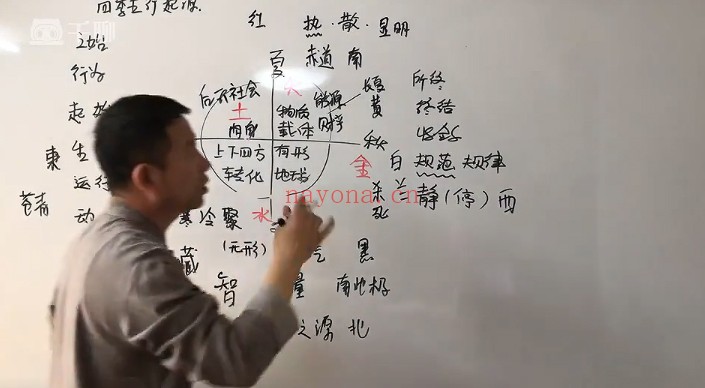 千聊
四季五行起源
红 热·散·显明
夏 赤道 南
行为
火
社会
能源
长夏 所终
土
物质
黄 终结
起始
载体
秋
东 生
上下四方 有形
金 白 规范 规律
运行
转变化 地球
nayonai.cn
杀 静(停) 西
苍青 动
寒冷聚 水
死
藏 (无形) 气 黑
智 量 南北极
之源 北